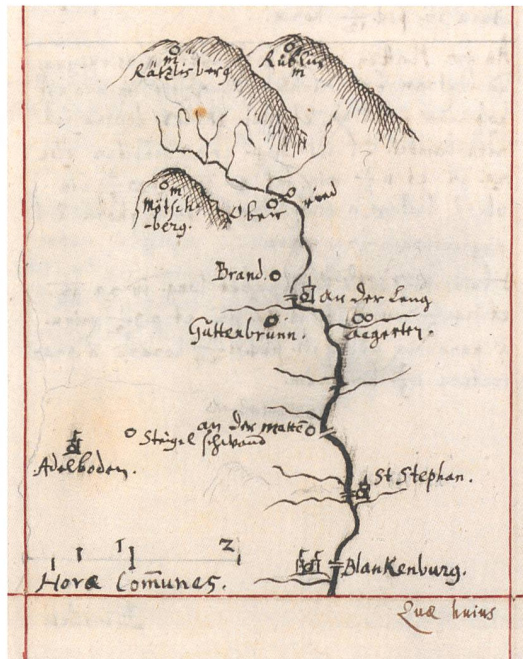 m
Rätzlisberg
Rüblin
m
m
Mötschen
-berg.
Oberried
Brand.
An der Leng
Guttenbrunn.
Aegerten.
an der matte
Steigel schwand
Adelboden.
St Stephan.
1 2
Blankenburg.
Horæ Com̄unes.
Quæ huius